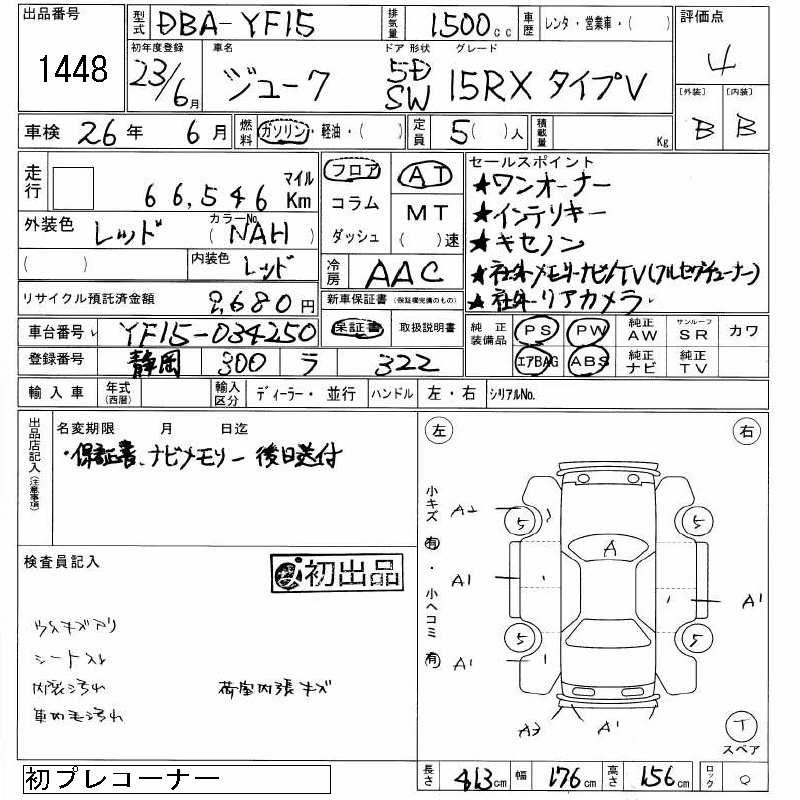 出品番号 1448
型式 DBA-YF15 排気量 1500cc 車歴 レンタ・営業車・( )
評価点 4
[外装] B [内装] B
初年度登録 23/6月
車名 ジューク
ドア 形状 5D SW
グレード 15RX タイプV
車検 26年 6月 燃料 ガソリン・軽油・( ) 定員 5( )人 積載量 Kg
走行 66,546 マイル Km
フロア コラム ダッシュ
AT MT ( )速
外装色 レッド カラーNo. (NAH)
( ) 内装色 レッド
冷房 AAC
セールスポイント
★ワンオーナー
★インテリキー
★キセノン
★社外メモリーナビ/TV(フルセグチューナー)
★社外リアカメラ
リサイクル預託済金額 9,680円
新車保証書(保証継続のもの)
保証書 取扱説明書
車台番号 YF15-034250
登録番号 静岡 300 ラ 322
純正装備品 PS PW 純正AW サンルーフSR カワ
エアBAG ABS 純正ナビ 純正TV
輸入車 年式(西暦) 輸入区分 ディーラー・並行 ハンドル 左・右 シリアルNo.
出品店記入(注意事項)
名変期限 月 日迄
・保証書、ナビメモリー 後日送付
検査員記入
初出品
ウスキズアリ
内装汚れ
荷室内張キズ
初プレコーナー
左 右
小キズ 有・小ヘコミ 有
A2
5 5
A
A1 A1
5 5
A1
A3 A1
T
スペア
長さ 413cm 幅 176cm 高さ 156cm ロック